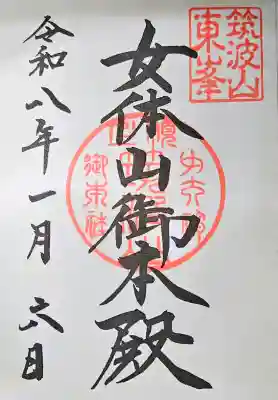 筑波山
東峯
女体山御本殿
御本社
令和八年一月六日